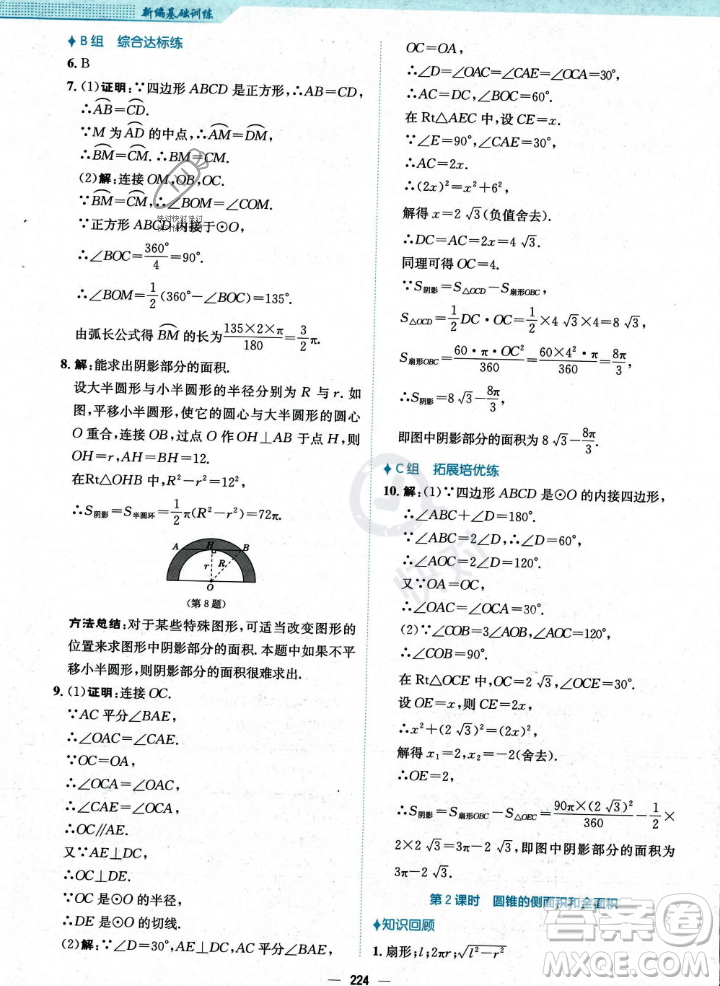 新编基础训练
B组 综合达标练
6. B
7. (1)证明:∵四边形ABCD是正方形,∴AB=CD,
∴AB=CD.
∵M为AD的中点,∴AM=DM,
∴BM=CM.∴BM=CM.
(2)解:连接OM,OB,OC.
∵BM=CM,∴∠BOM=∠COM.
∵正方形ABCD内接于⊙O,
∴∠BOC=360°/4=90°.
∴∠BOM=1/2(360°-∠BOC)=135°.
由弧长公式得BM的长为135×2×π/180=3/2π.
8. 解:能求出阴影部分的面积.
设大半圆形与小半圆形的半径分别为R与r.如
图,平移小半圆形,使它的圆心与大半圆形的圆心
O重合,连接OB,过点O作OH⊥AB于点H,则
OH=r,AH=BH=12.
在Rt△OHB中,R²-r²=12².
∴S阴影=S半圆环=1/2π(R²-r²)=72π.
A H B
r R
O
(第8题)
方法总结:对于某些特殊图形,可适当改变图形的
位置来求图形中阴影部分的面积.本题中如果不平
移小半圆形,则阴影部分的面积很难求出.
9. (1)证明:连接OC.
∵AC平分∠BAE,
∴∠OAC=∠CAE.
∵OC=OA,
∴∠OCA=∠OAC.
∴∠CAE=∠OCA.
∴OC∥AE.
又∵AE⊥DE,
∴OC⊥DE.
又∵OC是⊙O的半径,
∴DE是⊙O的切线.
(2)解:∵∠D=30°,AE⊥DE,∴∠DAE=60°.
∴∠OAC=∠CAE=30°.
OC=OA,
∴∠D=∠OAC=∠OCA=30°.
∴AC=DC,∠BOC=60°.
在Rt△AEC中,设CE=x.
∵∠E=90°,∠CAE=30°,
∴AC=2x.
∴(2x)²=x²+6².
解得x=2√3(负值舍去).
∴DC=AC=4√3.
同理可得OC=4.
∵S阴影=S△OCD-S扇形OBC,
S△OCD=1/2DC·OC=1/2×4√3×4=8√3,
S扇形OBC=60·π·OC²/360=60×4²·π/360=8π/3,
∴S阴影=8√3-8π/3.
即图中阴影部分的面积为8√3-8π/3.
C组 拓展培优练
10. 解:(1)∵四边形ABCD是⊙O的内接四边形,
∴∠ABC+∠D=180°.
∵∠ABC=2∠D,∴∠D=60°,∠ABC=120°.
又∵OA=OC,
∴∠OAC=∠OCA=30°.
(2)∵∠COB=3∠AOB,
∴∠AOB=30°,∠COB=90°.
在Rt△OCE中,OC=2√3,
设OE=x,则CE=2x.
∴x²+(2√3)²=(2x)².
解得x₁=2,x₂=-2(舍去).
∴OE=2,
∴S阴影=S扇形OBC-S△OEC=90π×(2√3)²/360-1/2×
2×2√3=3π-2√3.
即图中阴影部分的面积为3π-2√3.
第2课时 圆锥的侧面积和全面积
知识回顾
1. 扇形;l;2πr;√l²-r²
224
答案圈
MXQE.COM